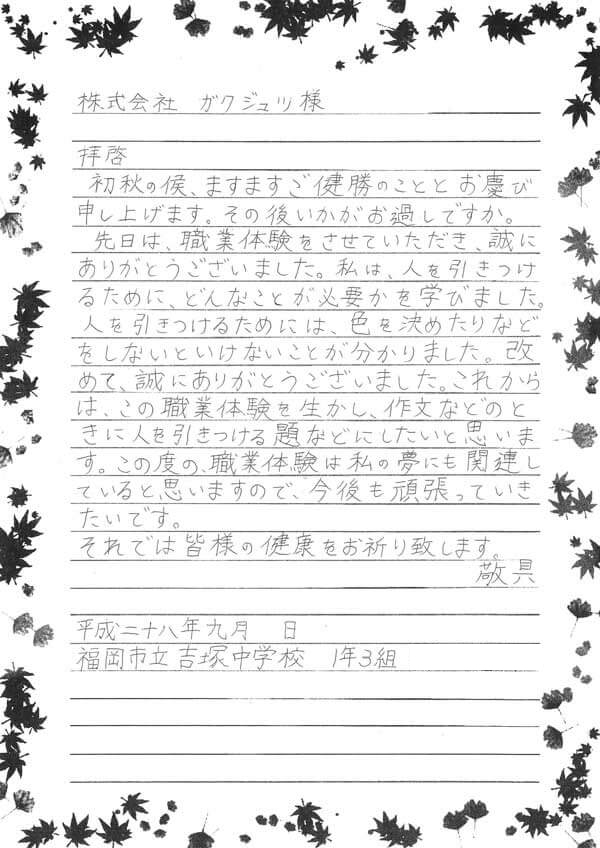 株式会社 ガクジュツ様
拝啓
初秋の候、ますますご健勝のこととお慶び
申し上げます。その後いかがお過しですか。
先日は、職業体験をさせていただき、誠に
ありがとうございました。私は、人を引きつけ
るために、どんなことが必要かを学びました。
人を引きつけるためには、色を決めたりなど
をしないといけないことが分かりました。改
めて、誠にありがとうございました。これから
は、この職業体験を生かし、作文などのと
きに人を引きつける題などにしたいと思いま
す。この度の、職業体験は私の夢にも関連し
ていると思いますので、今後も頑張っていき
たいです。
それでは皆様の健康をお祈り致します。
敬具
平成二十八年九月 日
福岡市立吉塚中学校 1年3組